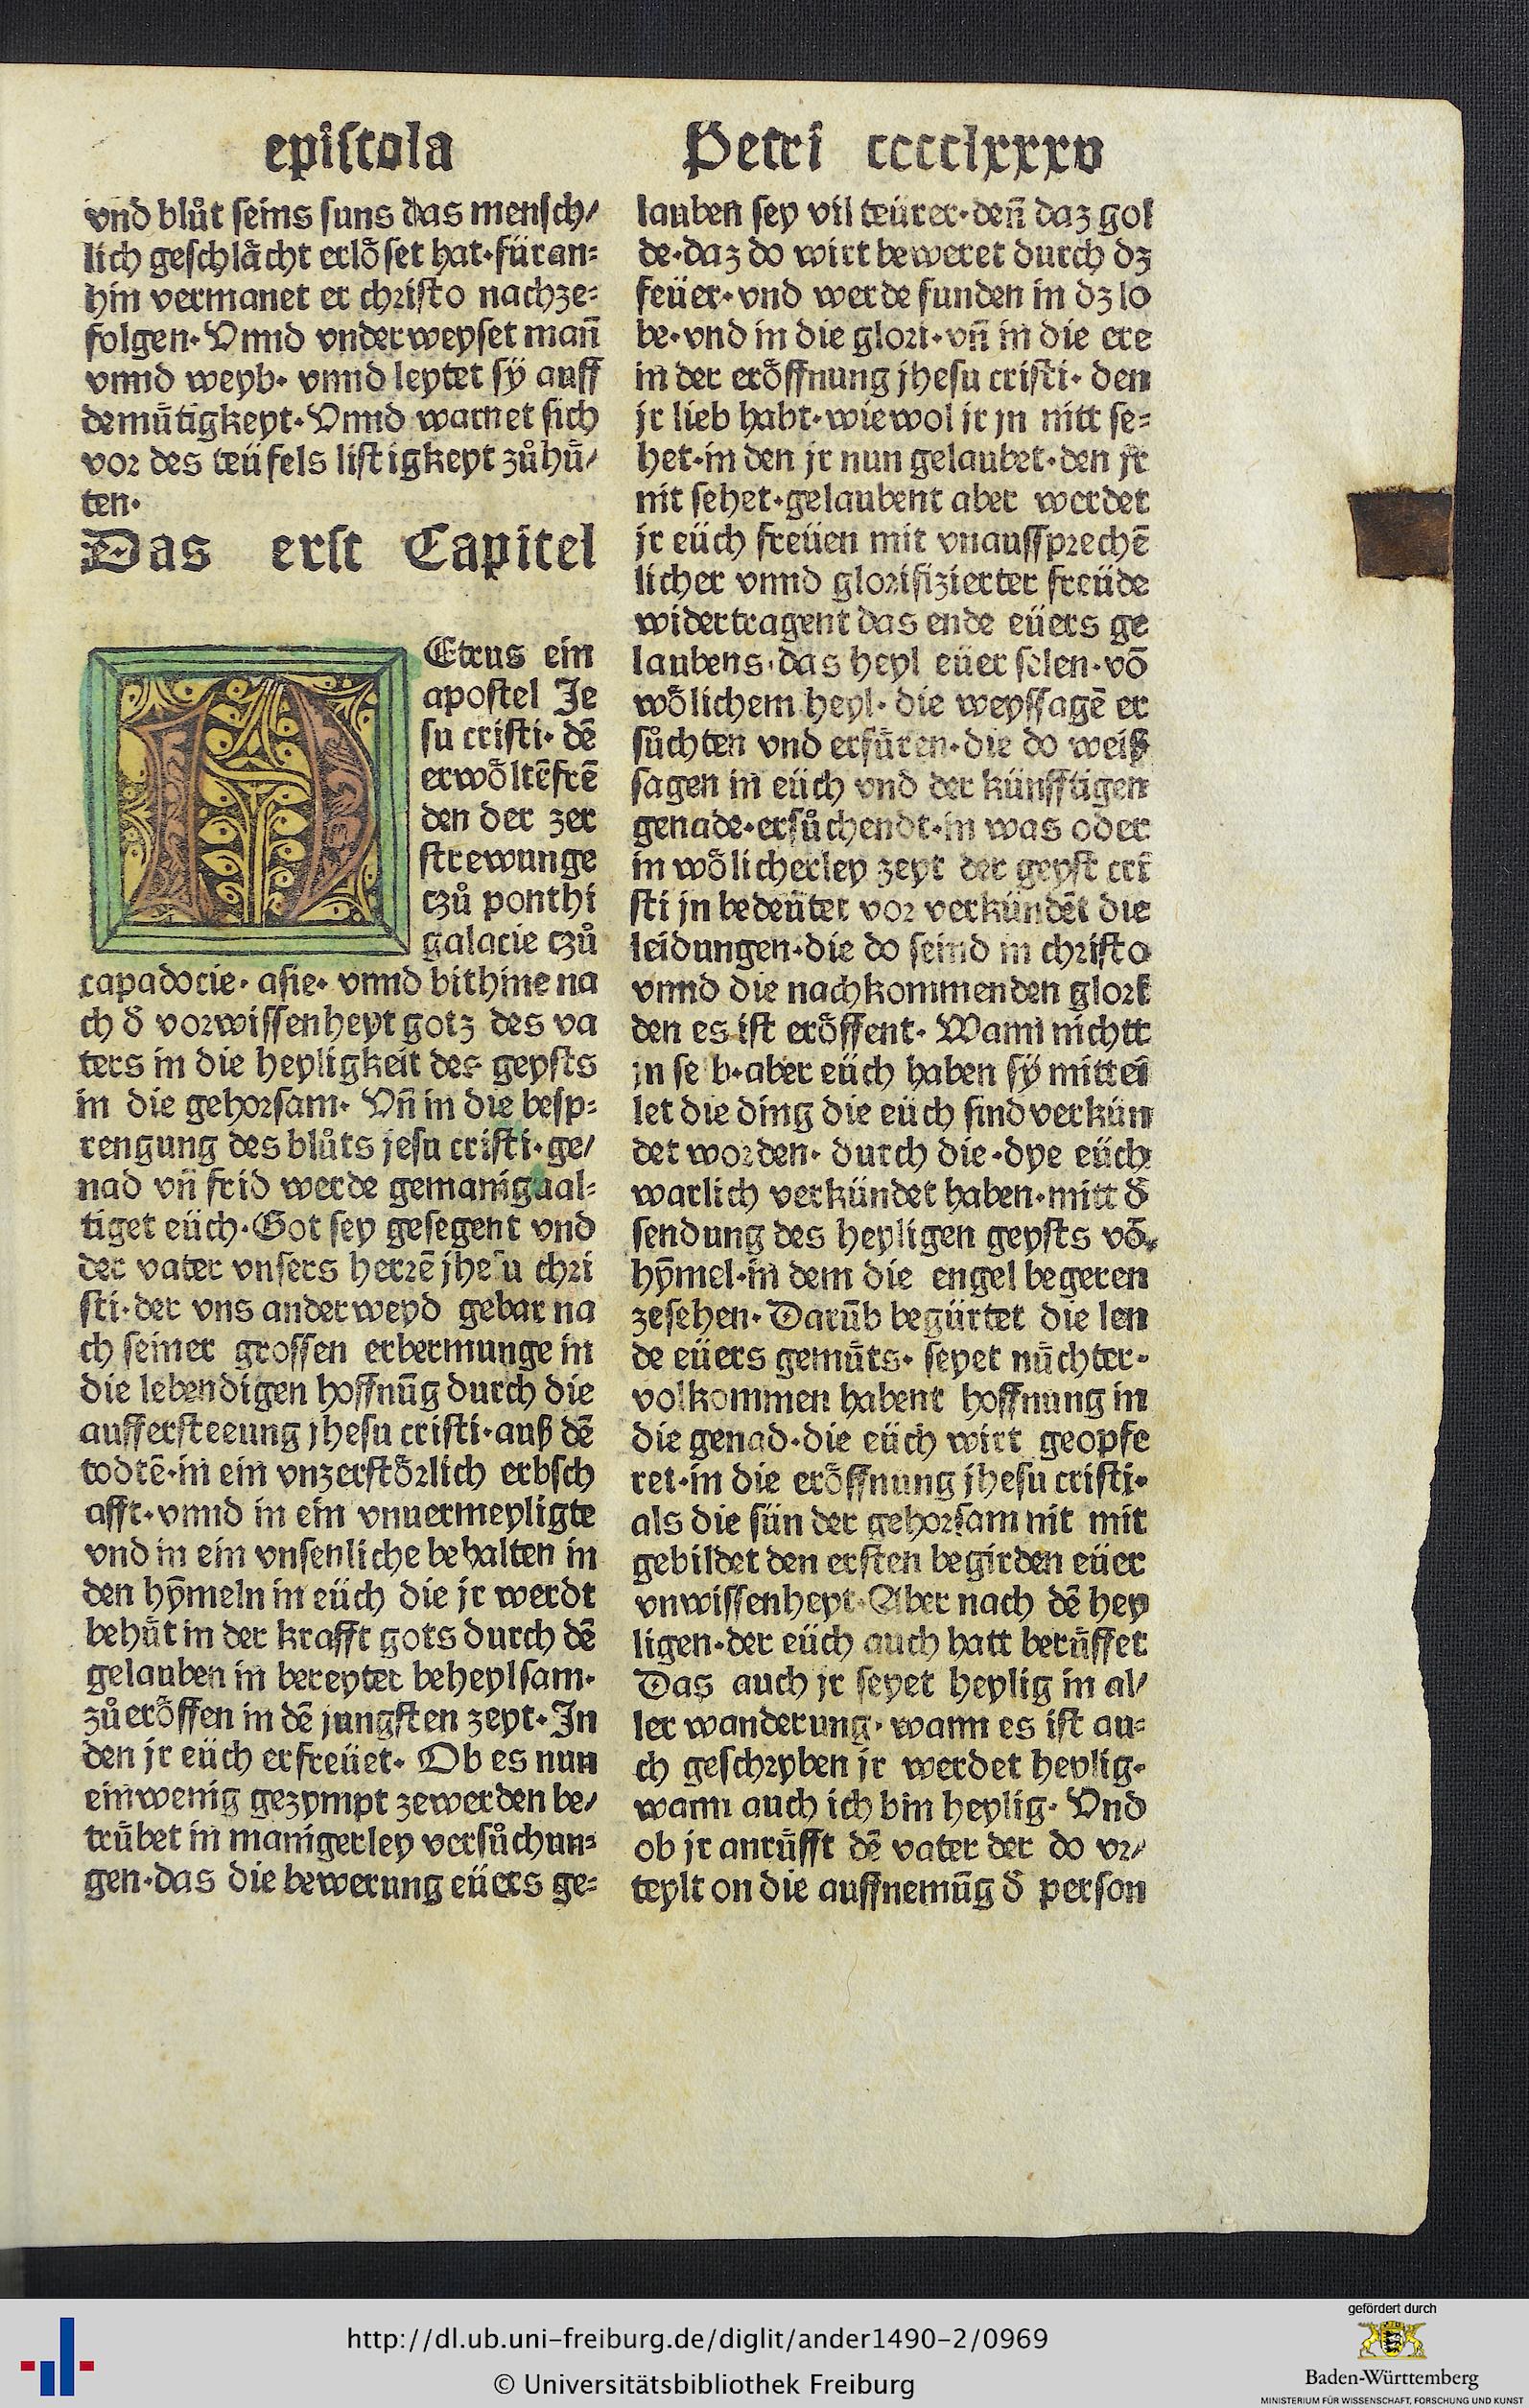 epistola
vnd blůt seins suns das mensch/
lich geschlächt erlößet hat·für an=
hin vermanet er christo nachze=
folgen·Vnnd vnderweyset man̄
vnnd weyb· vnnd leytet sÿ auff
demütigkeyt·Vnnd warnet sich
vor des teüfels listigkeyt zůhü/
ten·
Das erst Capitel
Etrus ein
apostel Je
su cristi· dē
erwöltē frē
den der zer
strewunge
czů ponthi
galacie czů
capadocie· asie· vnnd bithine na
ch đ vorwissenheyt gotz des va
ters in die heyligkeit des geysts
in die gehorsam· Vn̄ in die besp=
rengung des blůts jesu cristi·ge/
nad vn̄ frid werde gemanigual=
tiget eüch·Got sey gesegent vnd
der vater vnsers herrē jhesu chri
sti·der vns anderweyd gebar na
ch seiner grossen erbermunge in
die lebendigen hoffnūg durch die
aufferßteeung jhesu cristi·auß dē
todtē·in ein vnzerstörlich erbsch
afft·vnnd in ein vnuermeyligte
vnd in ein vnsenliche behalten in
den hȳmeln in eüch die jr werdt
behüt in der krafft gots durch dē
gelauben in bereyter beheylsam·
zůeröffen in dē jungsten zeyt·In
den jr eüch erfreüet· Ob es nun
ein wenig gezympt zewerden be/
trübet in manigerley versůchun=
gen·das die bewerung eüers ge=
Petri ccccclxxxv
lauben sey vil teürer·den̄ daz gol
de·daz do wirt beweret durch dz
feüer·vnd werde funden in dz lo
be·vnd in die glori·vn̄ in die ere
in der eröffnung jhesu cristi· den
jr lieb habt·wiewol jr jn nitt se=
het·in den jr nun gelaubet·den jr
nit sehet·gelaubent aber werdet
jr eüch freüen mit vnaussprechē
licher vnnd glorifizierter freüde
widertragent das ende eüers ge
laubens·das heyl eüer selen·vō
wölichem heyl· die weyssagē er
sůchten vnd erfüren·die do weiß
sagen in eüch vnd der künfftigen
genade·ersůchendt·in was oder
in wölicherley zeyt der geyst cri
sti jn bedeütet vor verkündēt die
leidungen·die do seind in christo
vnnd die nachkommenden glori
den es ist eröffent· Wann nichtt
jn se b·aber eüch haben sÿ mittei
let die ding die eüch sind verkün
det worden· durch die·dye eüch
warlich verkündet haben·mitt đ
sendung des heyligen geysts vō
hȳmel·in dem die engel begeren
zesehen· Darūb begürtet die len
de eüers gemüts· seyet nüchter·
volkommen habent hoffnung in
die genad·die eüch wirt geopfe
ret·in die eröffnung jhesu cristi·
als die sün der gehorsam nit mit
gebildet den ersten begirden eüer
vnwissenheyt·Aber nach dē hey
ligen·der eüch auch hatt berüffet
Das auch jr seyet heylig in al/
ler wanderung· wann es ist au=
ch geschryben jr werdet heylig·
wann auch ich bin heylig· Vnd
ob jr anrüfft dē vater der do vr/
teylt on die auffnemūg đ person
http://dl.ub.uni-freiburg.de/diglit/ander1490-2/0969
© Universitätsbibliothek Freiburg
gefördert durch
Baden-Württemberg
MINISTERIUM FÜR WISSENSCHAFT, FORSCHUNG UND KUNST